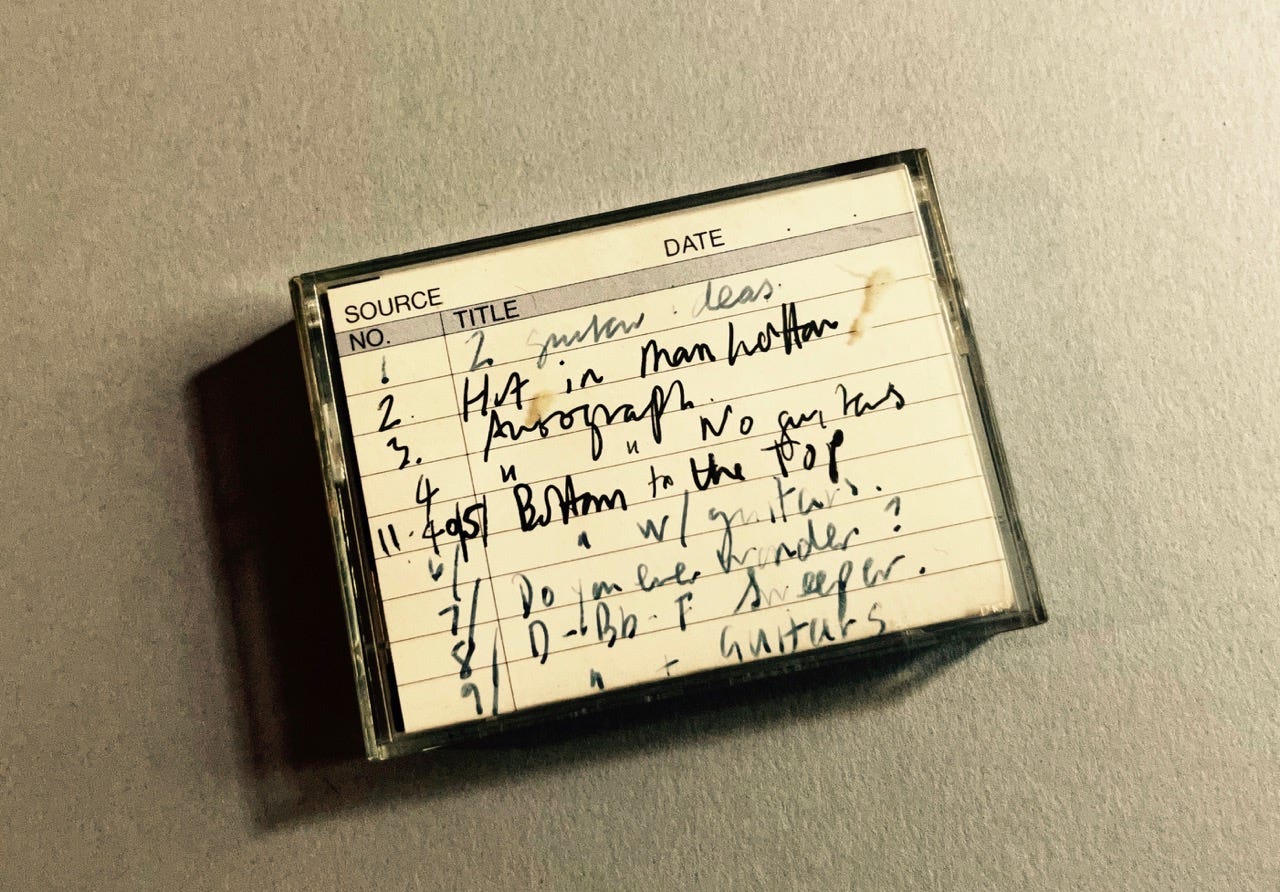 SOURCE DATE
NO. TITLE
1 2 guitar ideas.
2. Hot in Manhattan
3. Autograph.
4 " " No guitars
11.40 5/ Bottom to the Top
6/ " w/ guitars.
7/ Do you ever wonder?
8/ D - Bb - F Sweeper.
9/ " + Guitars